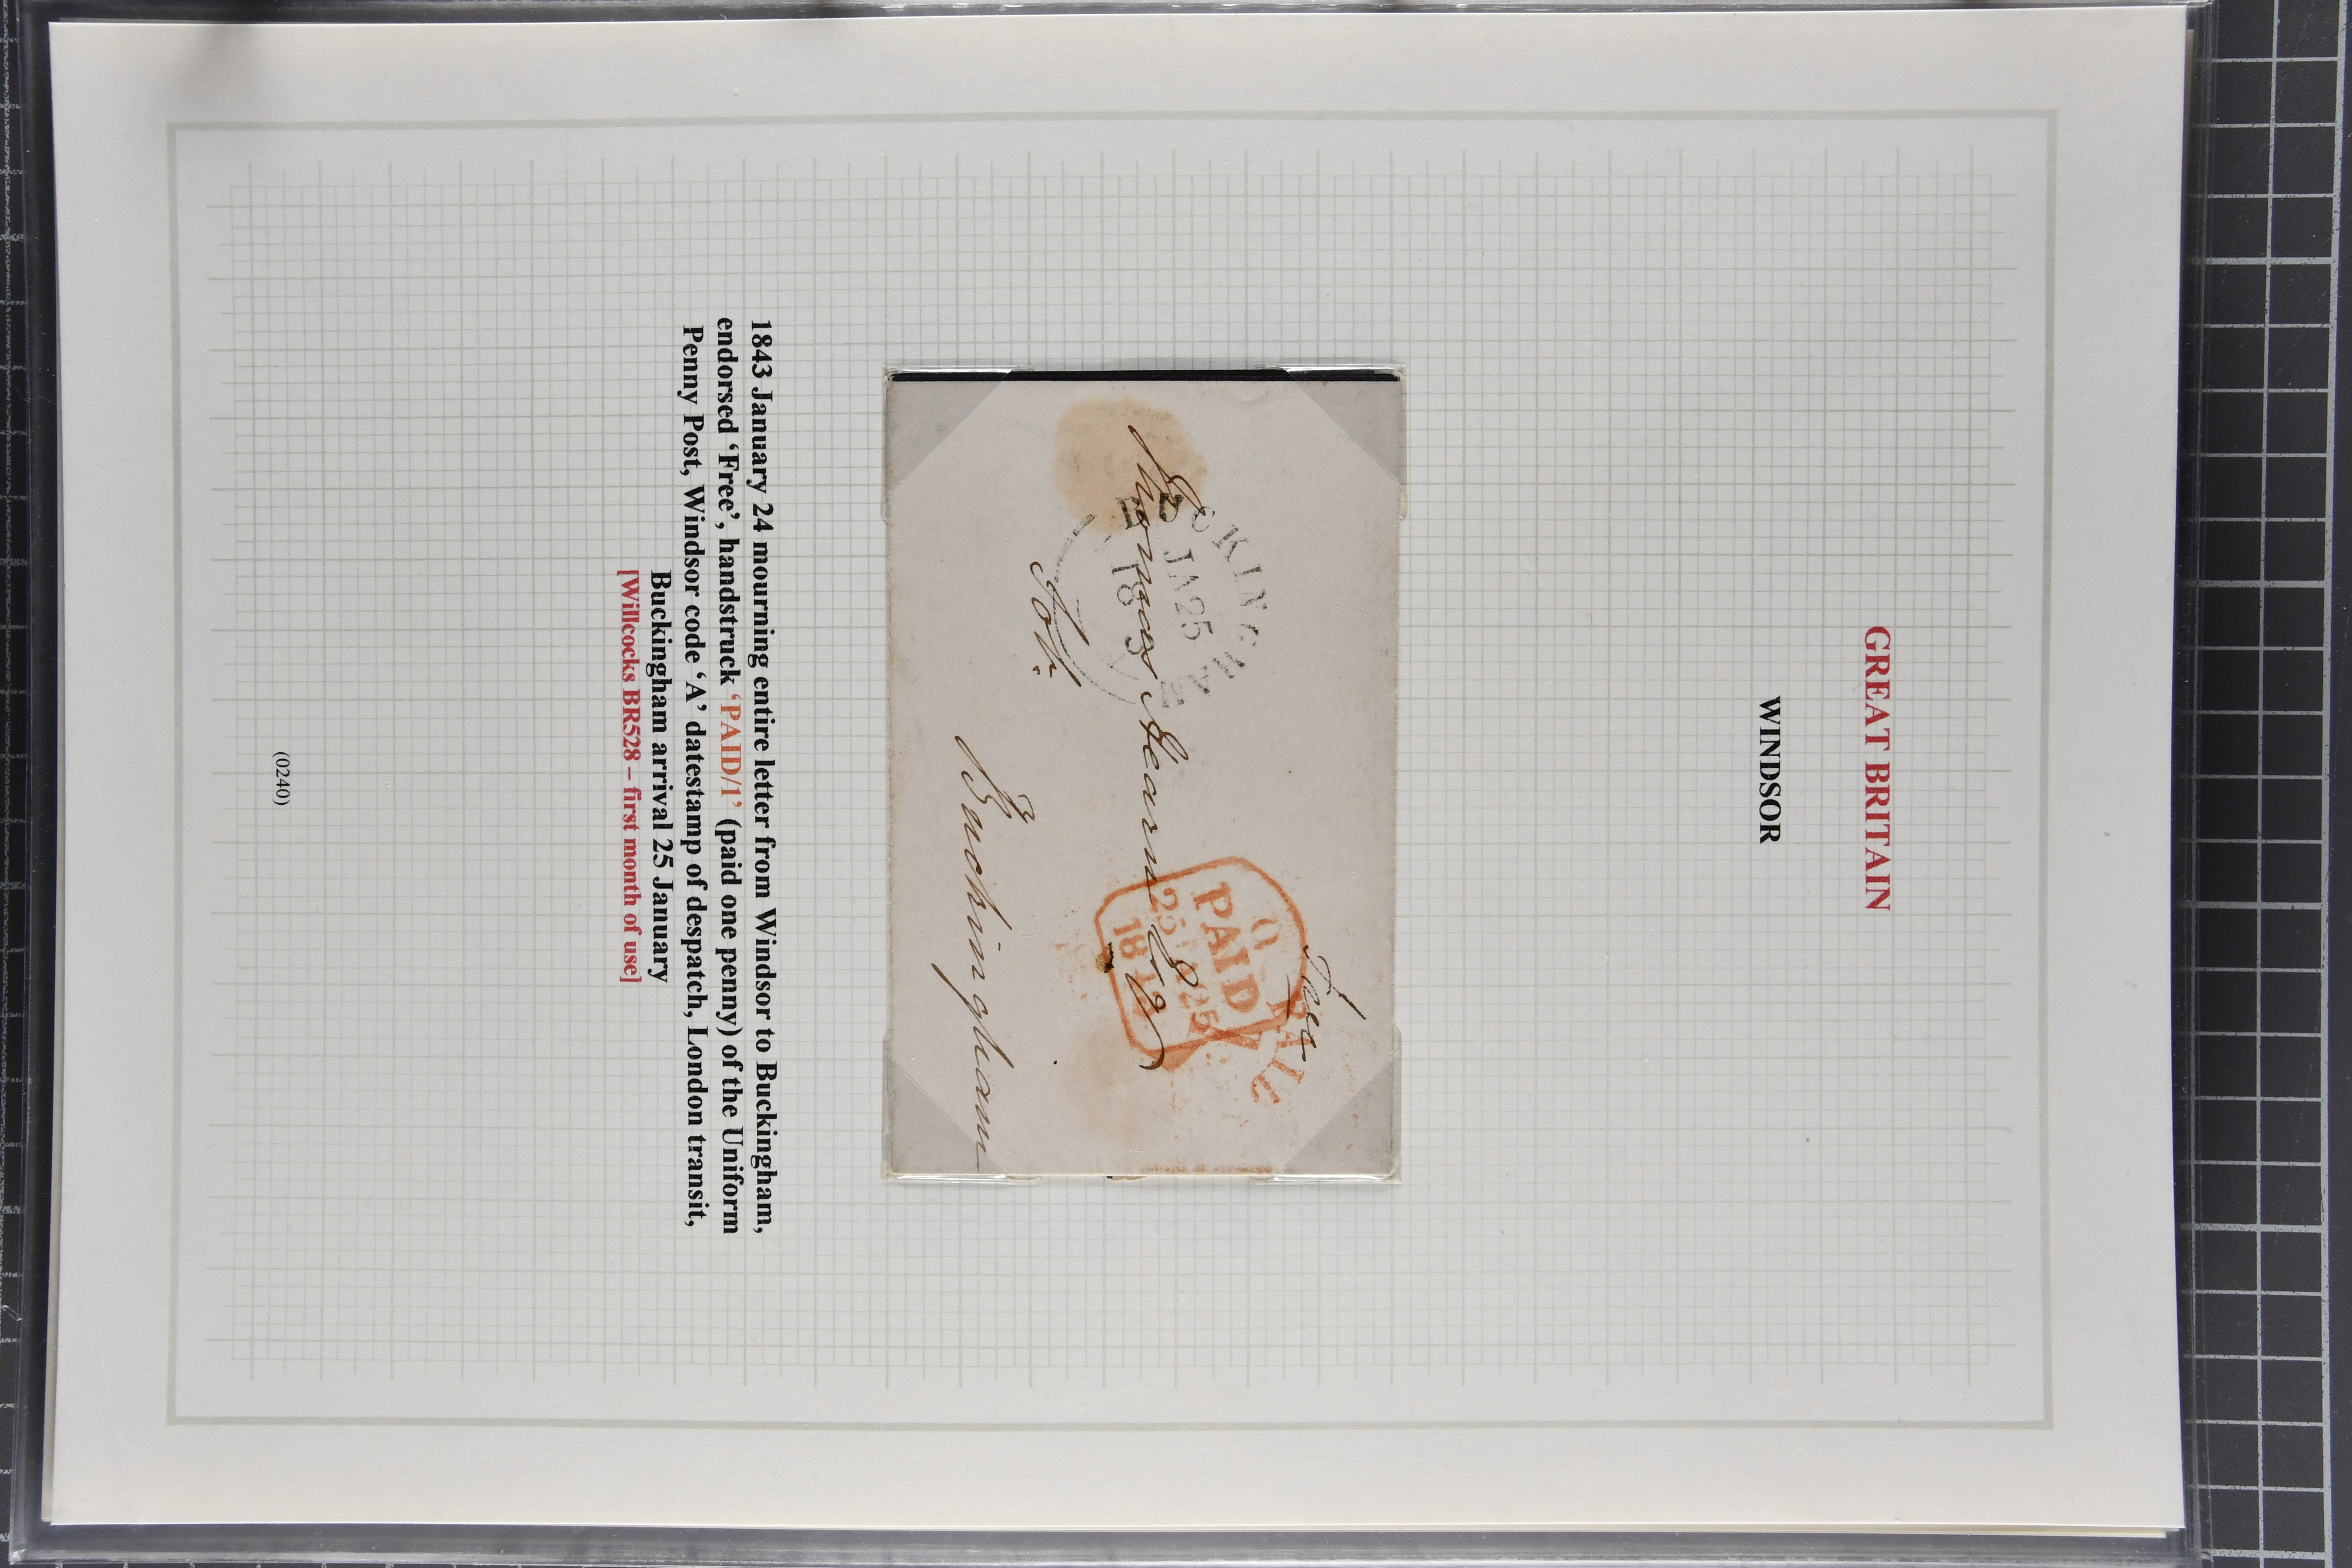 GREAT BRITAIN
WINDSOR
Free
PAID
25 JA 25
BUCKINGHAM
JA 25
Thomas Hearn Esqr
Sol:r
Buckingham
1843 January 24 mourning entire letter from Windsor to Buckingham,
endorsed ‘Free’, handstruck ‘PAID/1’ (paid one penny) of the Uniform
Penny Post, Windsor code ‘A’ datestamp of despatch, London transit,
Buckingham arrival 25 January
[Willcocks BR528 – first month of use]
(0240)